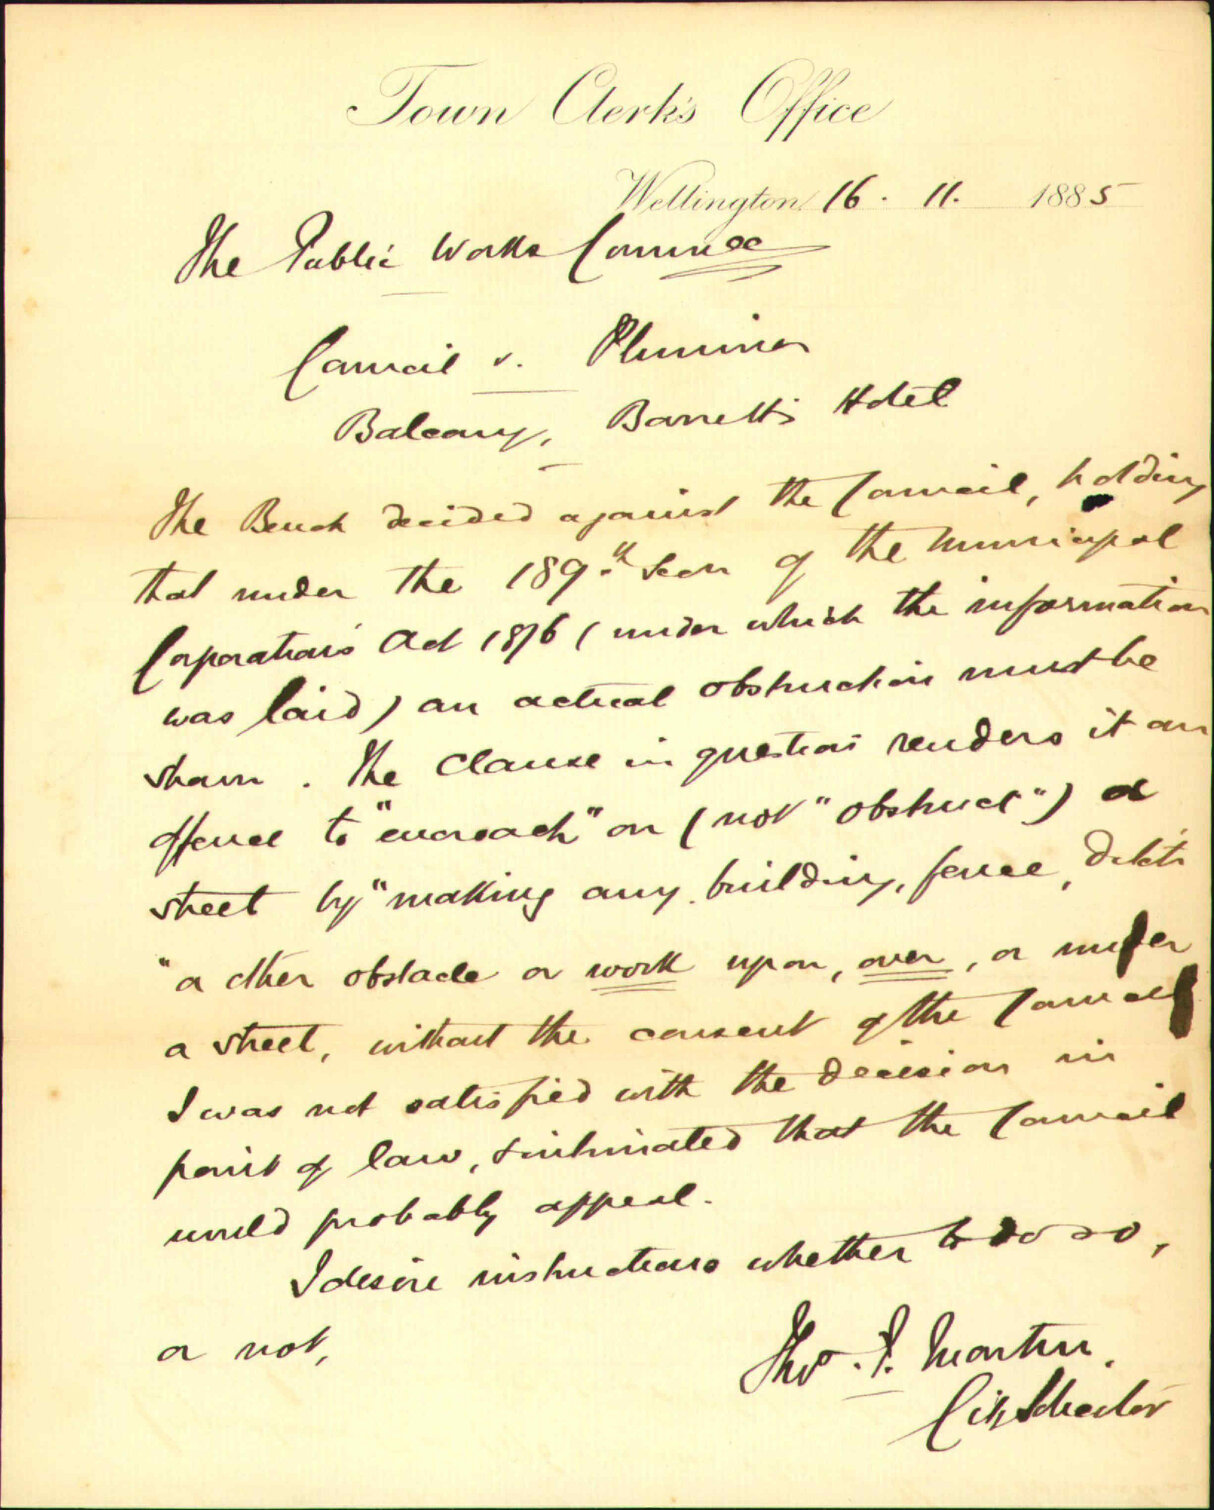 Town Clerk's Office
Wellington 16. 11. 1885
The Public Works Commee
Council v. Plimmer
Balcony, Barrett's Hotel
The Bench decided against the Council, holding
that under the 189th Secn of the Municipal
Corporations Act 1876 (under which the information
was laid) an actual obstruction must be
shown. The Clause in question renders it an
offence to "encroach" on (not "obstruct") a
street by "making any building, fence, ditch
"or other obstacle or work upon, over, or under
a street, without the consent of the Council
I was not satisfied with the decision in
point of law, & intimated that the Council
would probably appeal.
I desire instructions whether to do so,
or not,
Thos. F. Martin.
City Solicitor